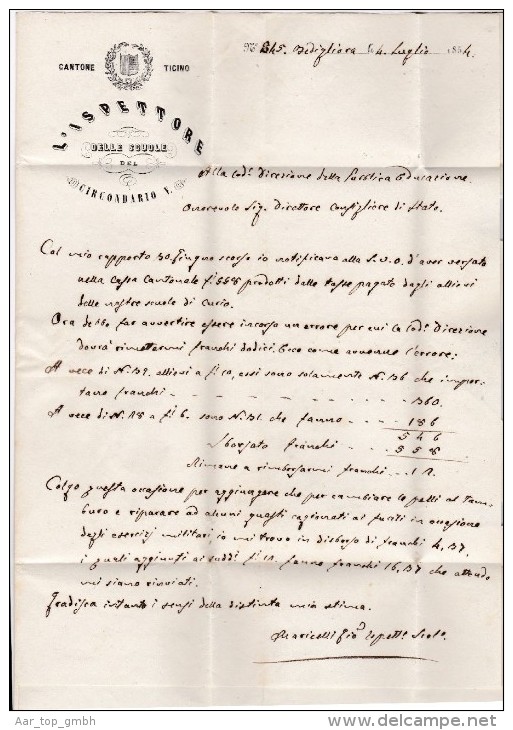 N. 245. Bedigliora li 4. Luglio 1854.
CANTONE TICINO
L'ISPETTORE
DELLE SCUOLE
DEL
CIRCONDARIO V.
Alla Lod. Direzione della Pubblica Educazione.
Onorevole Sig. Direttore Consigliere di Stato.
Col mio rapporto 30. Giugno scorso io notificava alla S.V.O. d'aver versato
nella Cassa Cantonale f. 558 prodotti dalle tasse pagate dagli allievi
delle nostre scuole di Curio.
Ora debbo far avvertire essere incorso un errore per cui la Lod. Direzione
dovrà rimettermi franchi dodici. Ecco come avvenne l'errore:
A vece di N. 37. allievi a f. 10, essi sono solamente N. 36 che impor-
tano franchi - - - 360.
A vece di N. 28 a f. 6. sono N. 31. che fanno - - - 186
546
Sborsato franchi - - - 558
Rimane a rimborsarmi franchi - - 12.
Colgo questa occasione per aggiungere che per cambiare le pelli al Tam-
buro e riparare ad alcuni guasti cagionati ai fucili in occasione
degli esercizj militari io mi trovo in disborso di franchi 4,37.
i quali aggiunti ai sudd. f. 12. fanno franchi 16,37 che attendo
mi siano rinviati.
Gradisca intanto i sensi della distinta mia stima.
Isp
Aar_top_gmbh
©Delcampe.net